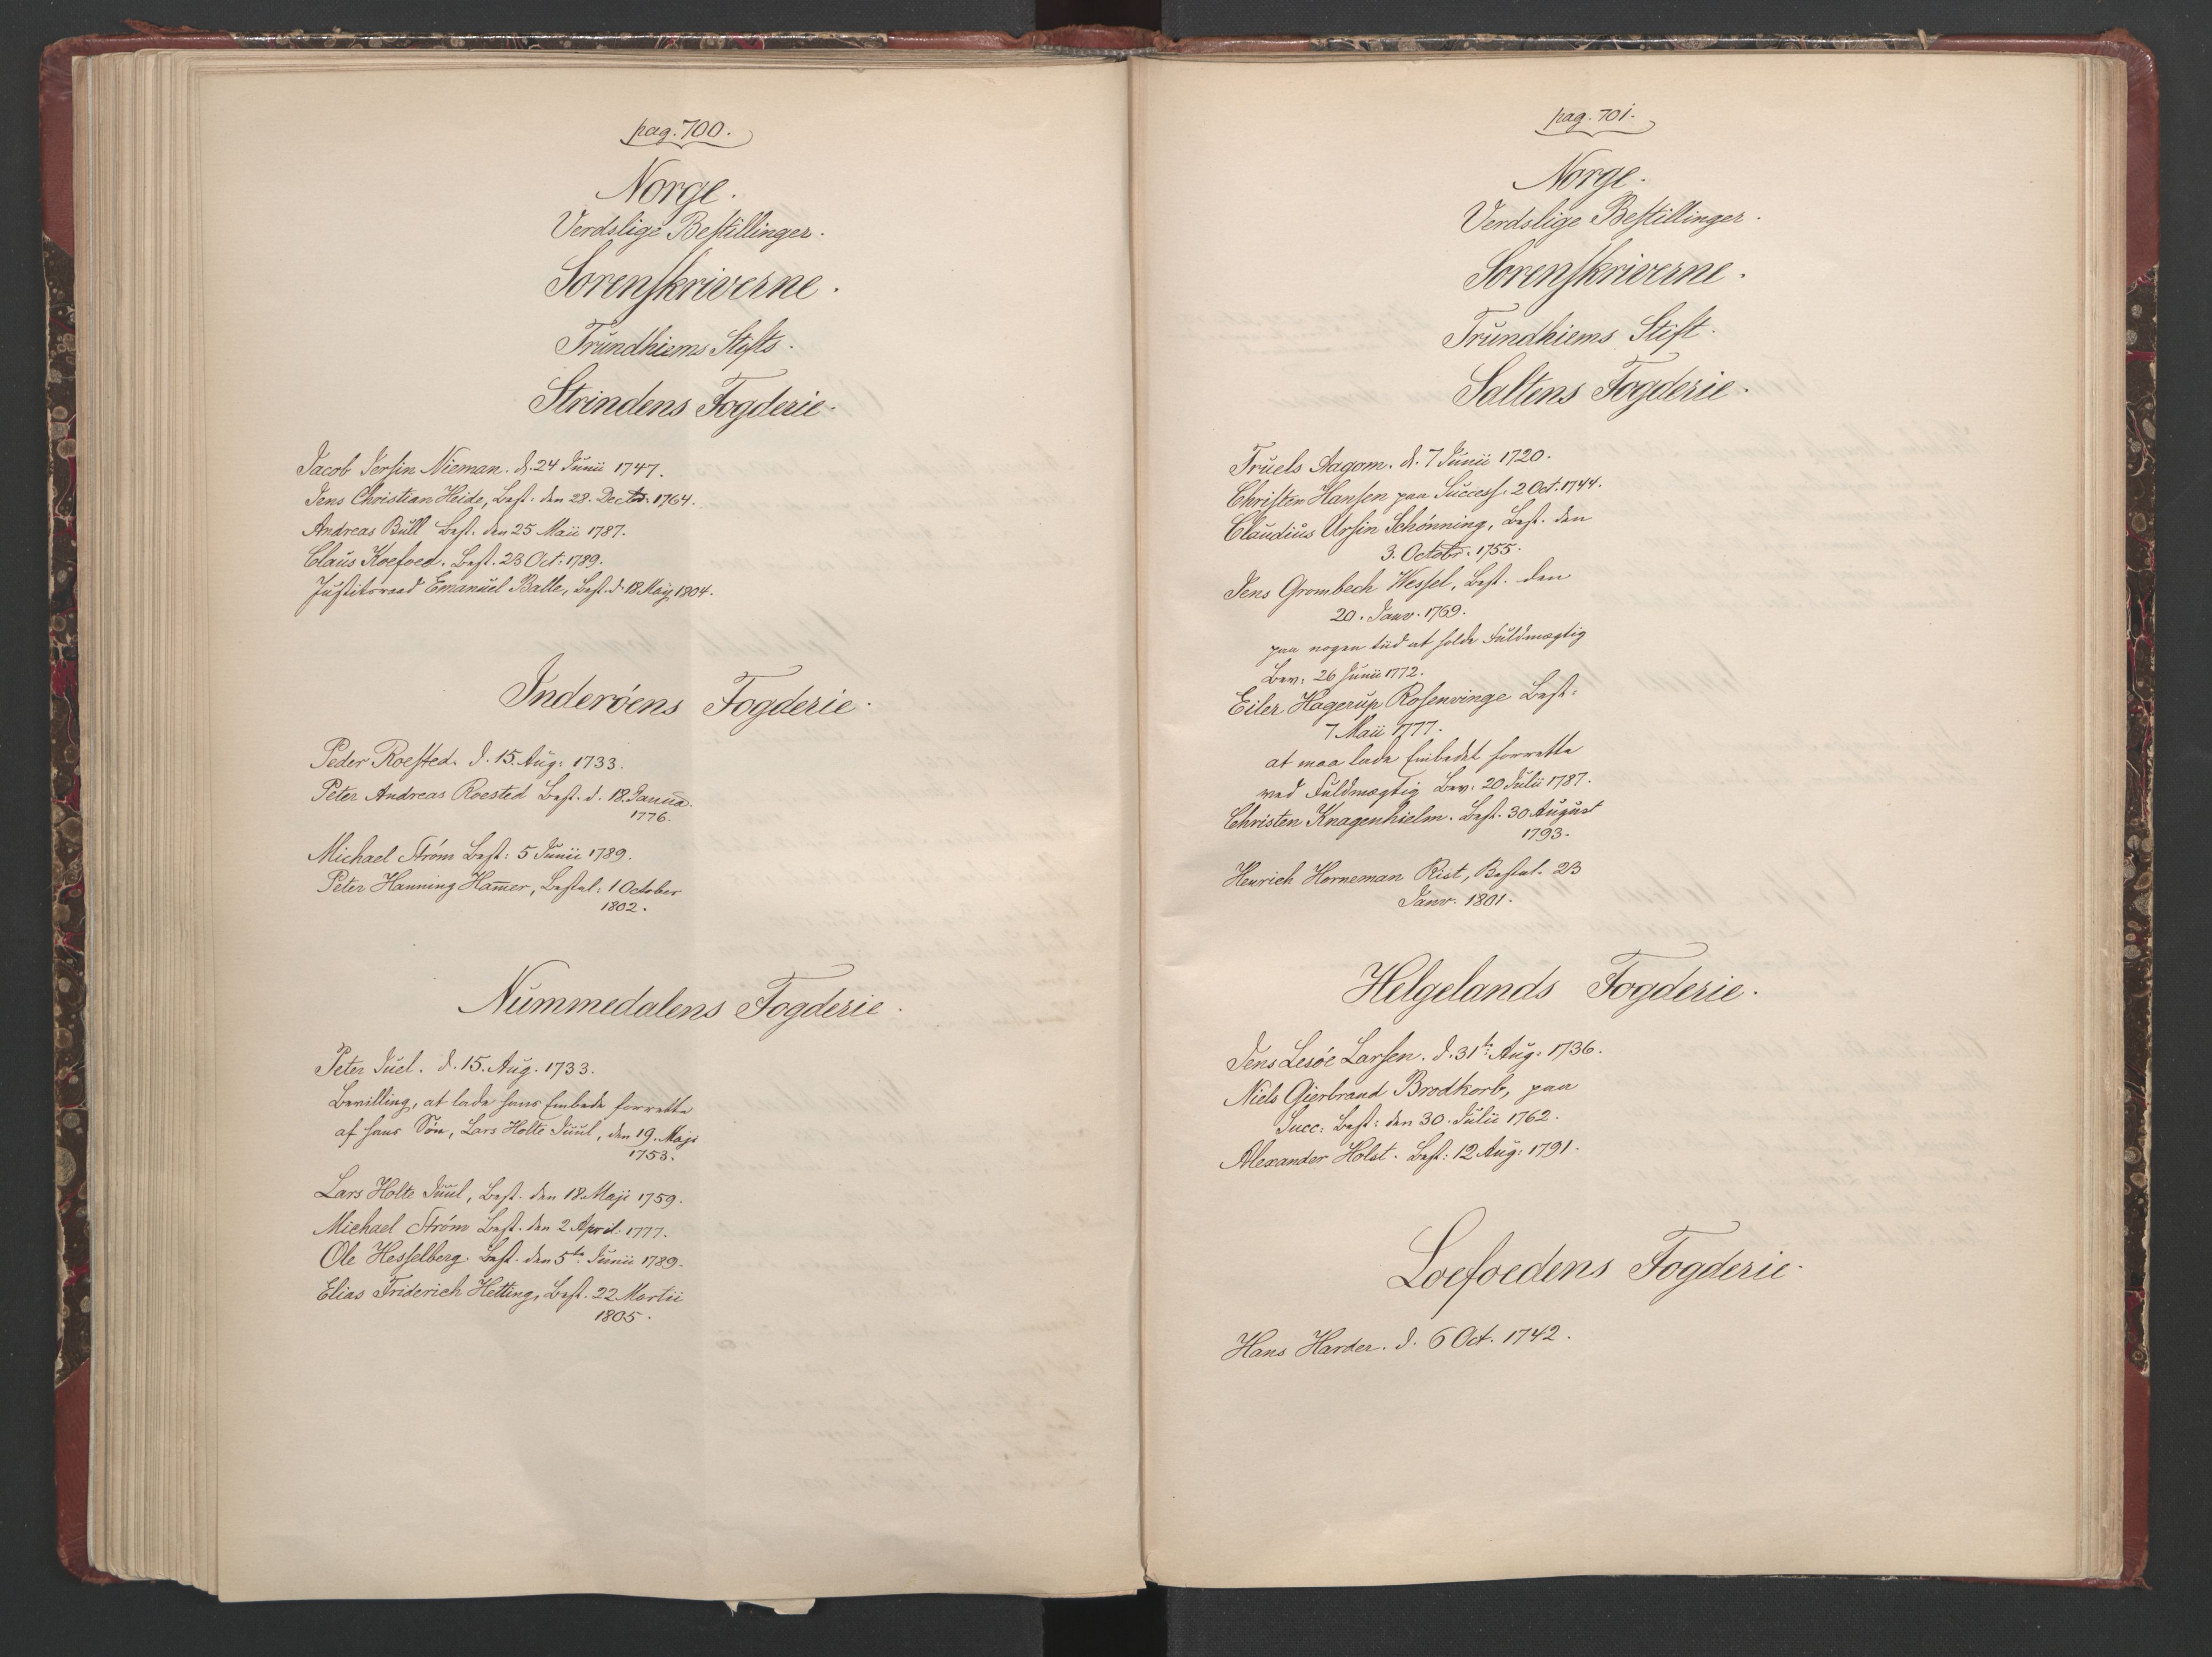 pag. 700.
Norge.
Verdslige Bestillinger.
Sorenskriverne.
Trundhiems Stifts.
Strindens Fogderie.
Jacob Jersin Nieman. d. 24 Junii 1747.
Jens Christian Heide, Best. den 28. Dectbr. 1764.
Andreas Bull Best. den 25 Maii 1787.
Claus Koefoed. Best. 23 Oct: 1789.
Justitsraad Emanuel Balle, Best. d. 18 Maÿ 1804.
Inderöens Fogderie.
Peder Roested. d. 15. Aug: 1733.
Peter Andreas Roested Best. d. 18. Janua.
1776.
Michael Ström Best: 5 Junii 1789.
Peter Hanning Ham̄er, Bestal: 1 October
1802.
Nummedalens Fogderie.
Peter Juel. d. 15. Aug. 1733.
Bevilling, at lade hans Embede forrette
af hans Sön, Lars Holte Juul, den 19. Maji
1753.
Lars Holte Juul, Best. den 18. Maji 1759.
Michael Ström Best. den 2 April. 1777.
Ole Hesselberg. Best. den 5te Junii 1789.
Elias Friderich Hetting, Best. 22 Martii
1805.
pag. 701.
Norge.
Verdslige Bestillinger.
Sorenskriverne.
Trundhiems Stift.
Saltens Fogderie.
Truels Aagom. d. 7 Junii 1720.
Christen Hansen paa Success. 2 Oct. 1744.
Claudius Ursin Schönning, Best. den
3. Octobr. 1755.
Jens Grombech Wessel, Best. den
20. Janv. 1769.
paa nogen tiid at holde Fuldmægtig
Bev: 26 Junii 1772.
Eiler Hagerup Rosenvinge Best:
7 Maii 1777.
at maa lade Embedet forrette
ved Fuldmægtig Bev. 20 Julii 1787.
Christen Knagenhielm. Best. 30 August
1793.
Henrich Horneman Rist, Bestal. 23
Janv. 1801.
Helgelands Fogderie.
Jens Lesöe Larsen. d. 31te Aug: 1736.
Niels Gierbrand Brodkorb, paa
Succ: Best: den 30. Julii 1762.
Alexander Holst. Best: 12 Aug: 1791.
Loefoedens Fogderie.
Hans Harder. d. 6 Oct. 1742.